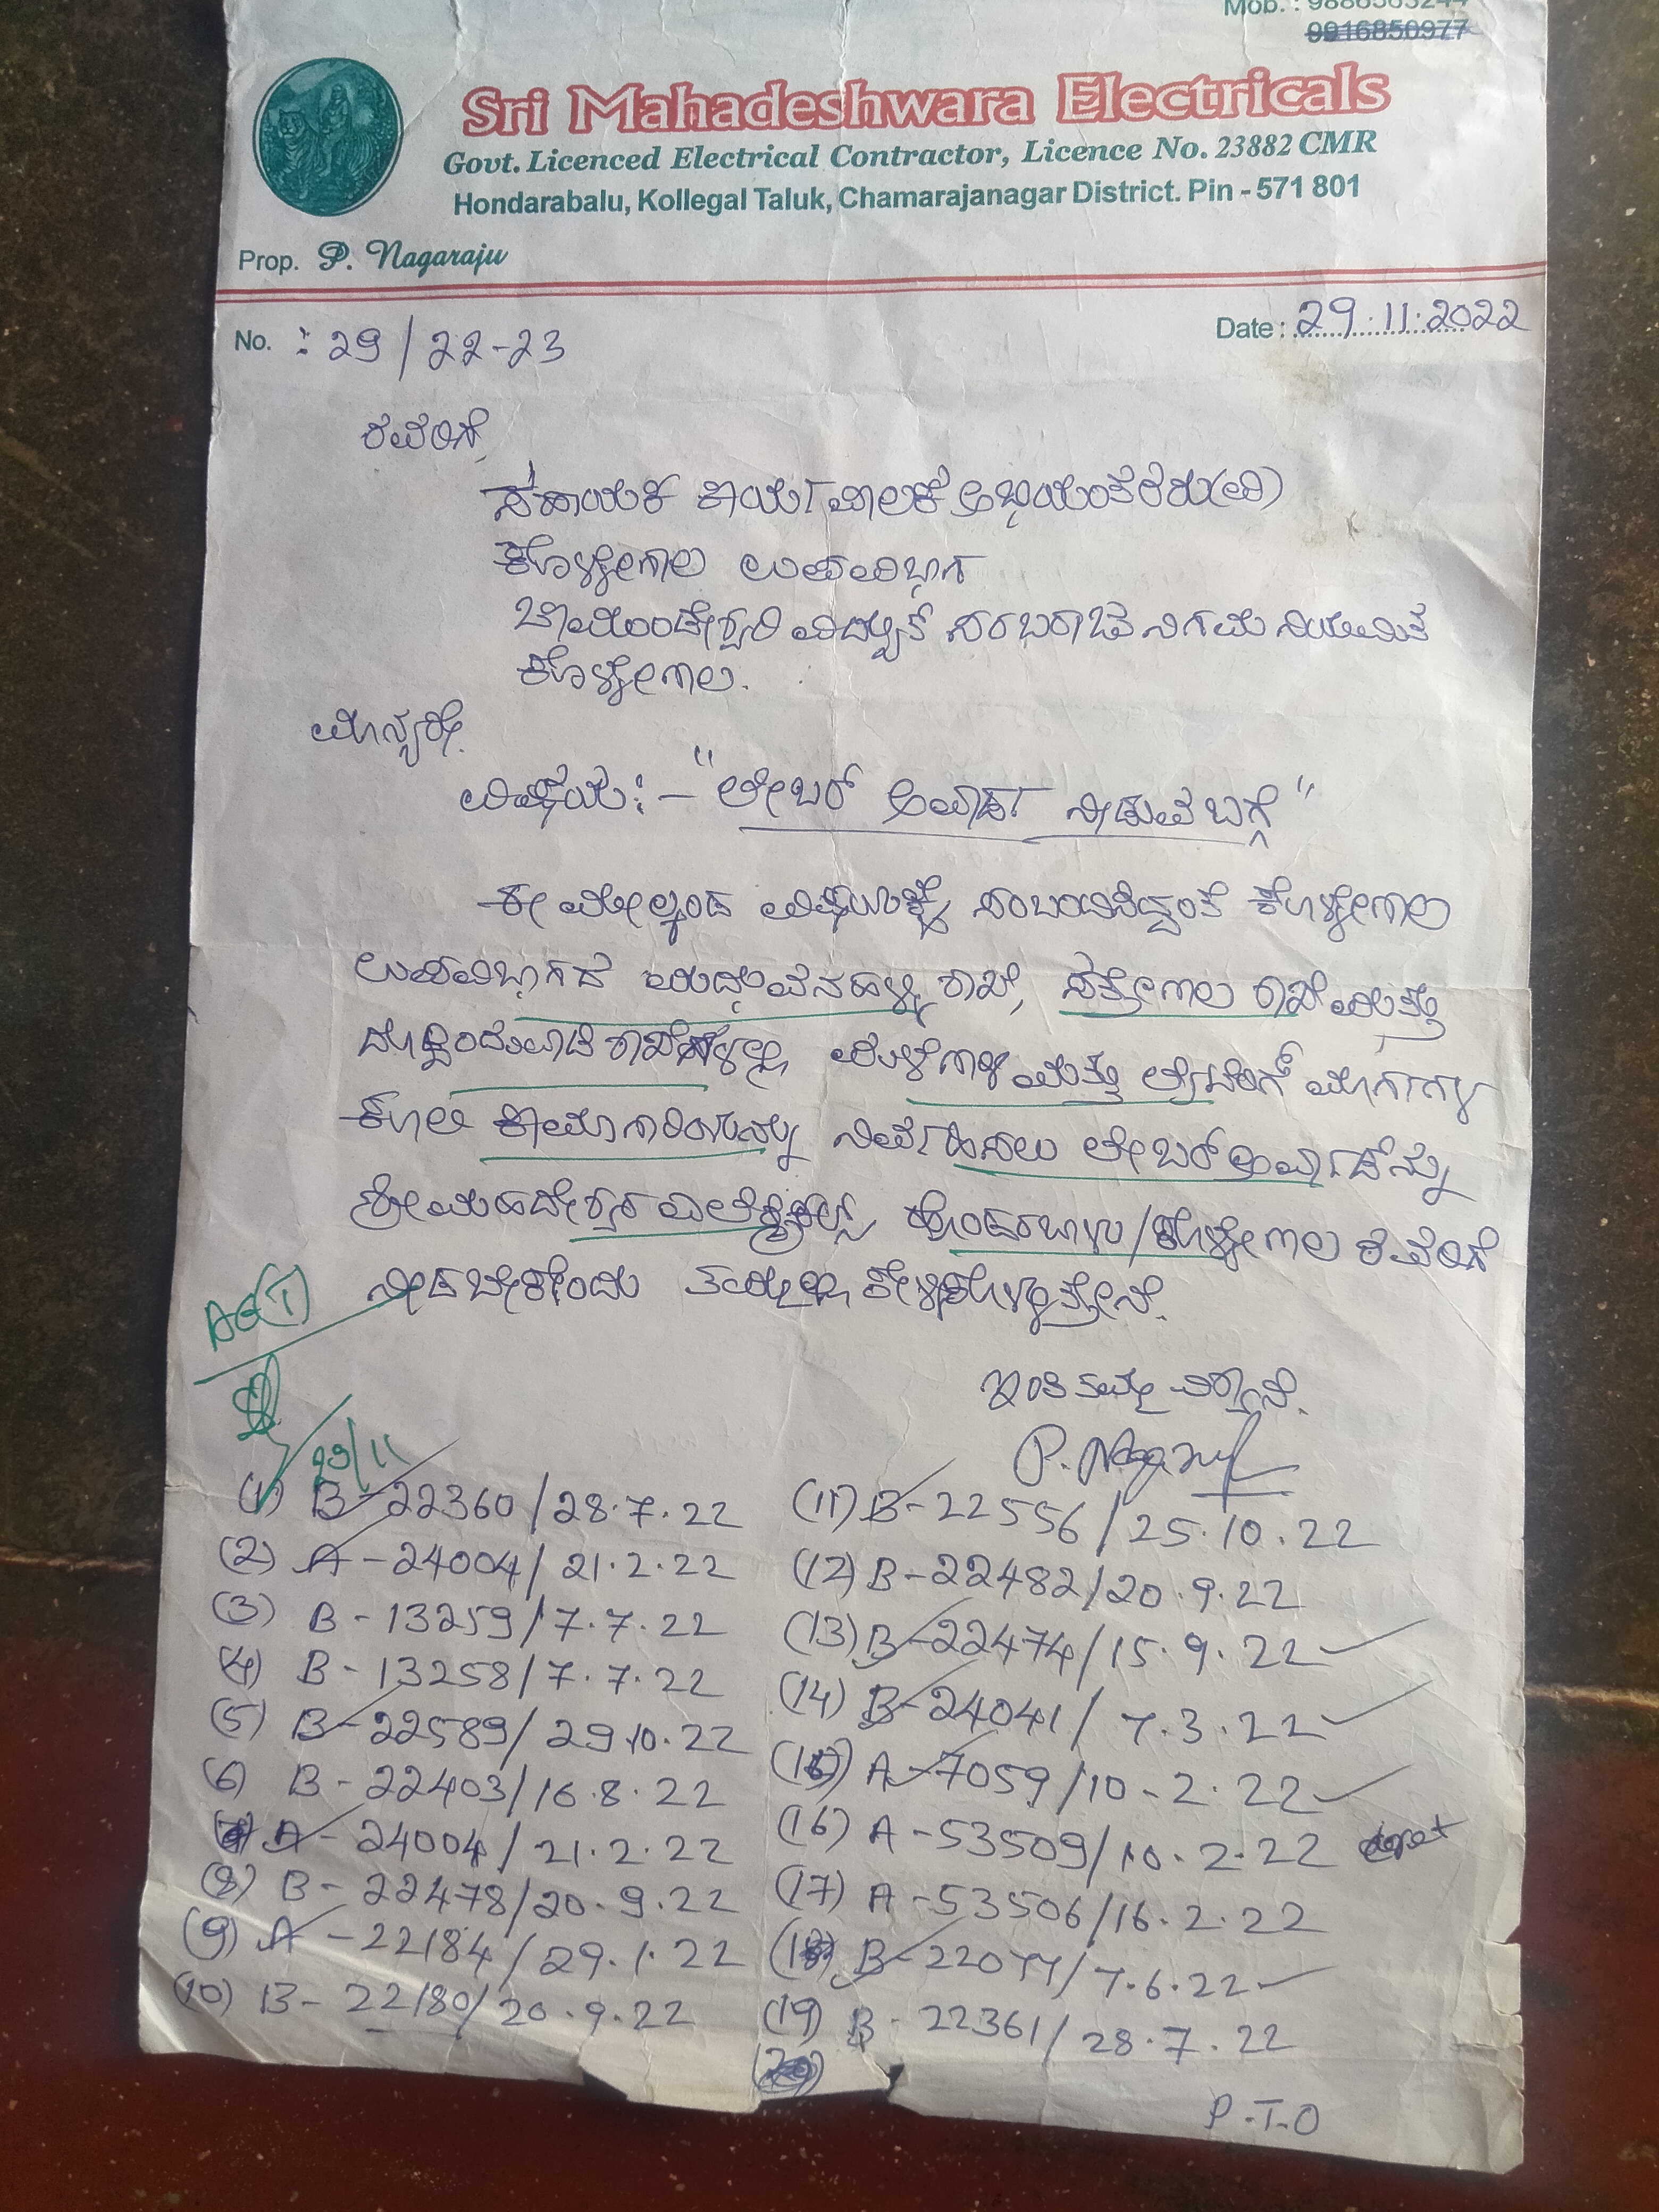 9916850977
Sri Mahadeshwara Electricals
Govt. Licenced Electrical Contractor, Licence No. 23882 CMR
Hondarabalu, Kollegal Taluk, Chamarajanagar District. Pin - 571 801
Prop. P. Nagaraju
No. : 29 / 22-23
Date : 29.11.2022
ರವರಿಗೆ,
ಸಹಾಯಕ ಕಾರ್ಯಪಾಲಕ ಅಭಿಯಂತರರು(ವಿ)
ಕೊಳ್ಳೇಗಾಲ ಉಪವಿಭಾಗ
ಚಾಮುಂಡೇಶ್ವರಿ ವಿದ್ಯುತ್ ಸರಬರಾಜು ನಿಗಮ ನಿಯಮಿತ
ಕೊಳ್ಳೇಗಾಲ.
ಮಾನ್ಯರೇ.
ವಿಷಯ:- "ಲೇಬರ್ ಅವಾರ್ಡ್ ನೀಡುವ ಬಗ್ಗೆ"
ಈ ಮೇಲ್ಕಂಡ ವಿಷಯಕ್ಕೆ ಸಂಬಂದಿಸಿದ್ದಂತೆ ಕೊಳ್ಳೇಗಾಲ
ಉಪವಿಭಾಗದ ಮುದ್ದೇವನಹಳ್ಳಿ ಶಾಖೆ, ಸತ್ತೇಗಾಲ ಶಾಖೆ ಮತ್ತು
ದೊಡ್ಡಿಂದುವಾಡಿ ಶಾಖೆಗಳಲ್ಲಿ ಮತ್ತು ಲೈಟಿಂಗ್ ಮಾರ್ಗಗಳ
ಕಾಮಗಾರಿಯನ್ನು ನಿರ್ವಹಿಸಲು ಲೇಬರ್ ಅವಾರ್ಡನ್ನು
ಶ್ರೀ ಮಹದೇಶ್ವರ ಎಲೆಕ್ಟ್ರಿಕಲ್ಸ್ ಹೊಂಡರಬಾಳು/ಕೊಳ್ಳೇಗಾಲ ರವರಿಗೆ
ನೀಡಬೇಕೆಂದು ತಮ್ಮಲ್ಲಿ ಕೇಳಿಕೊಳ್ಳುತ್ತೇನೆ.
AE(T)
29/11
ಇಂತಿ ತಮ್ಮ ವಿಶ್ವಾಸಿ.
P. Nagaraju
(1) B-22360/28.7.22
(2) A-24004/21.2.22
(3) B-13259/7.7.22
(4) B-13258/7.7.22
(5) B-22589/29.10.22
(6) B-22403/16.8.22
(7) A-24004/21.2.22
(8) B-22478/20.9.22
(9) A-22184/29.1.22
(10) B-22180/20.9.22
(11) B-22556/25.10.22
(12) B-22482/20.9.22
(13) B-22474/15.9.22
(14) B-24041/7.3.22
(15) A-7059/10-2.22
(16) A-53509/10.2.22
(17) A-53506/16.2.22
(18) B-22077/7.6.22
(19) B-22361/28.7.22
P.T.O